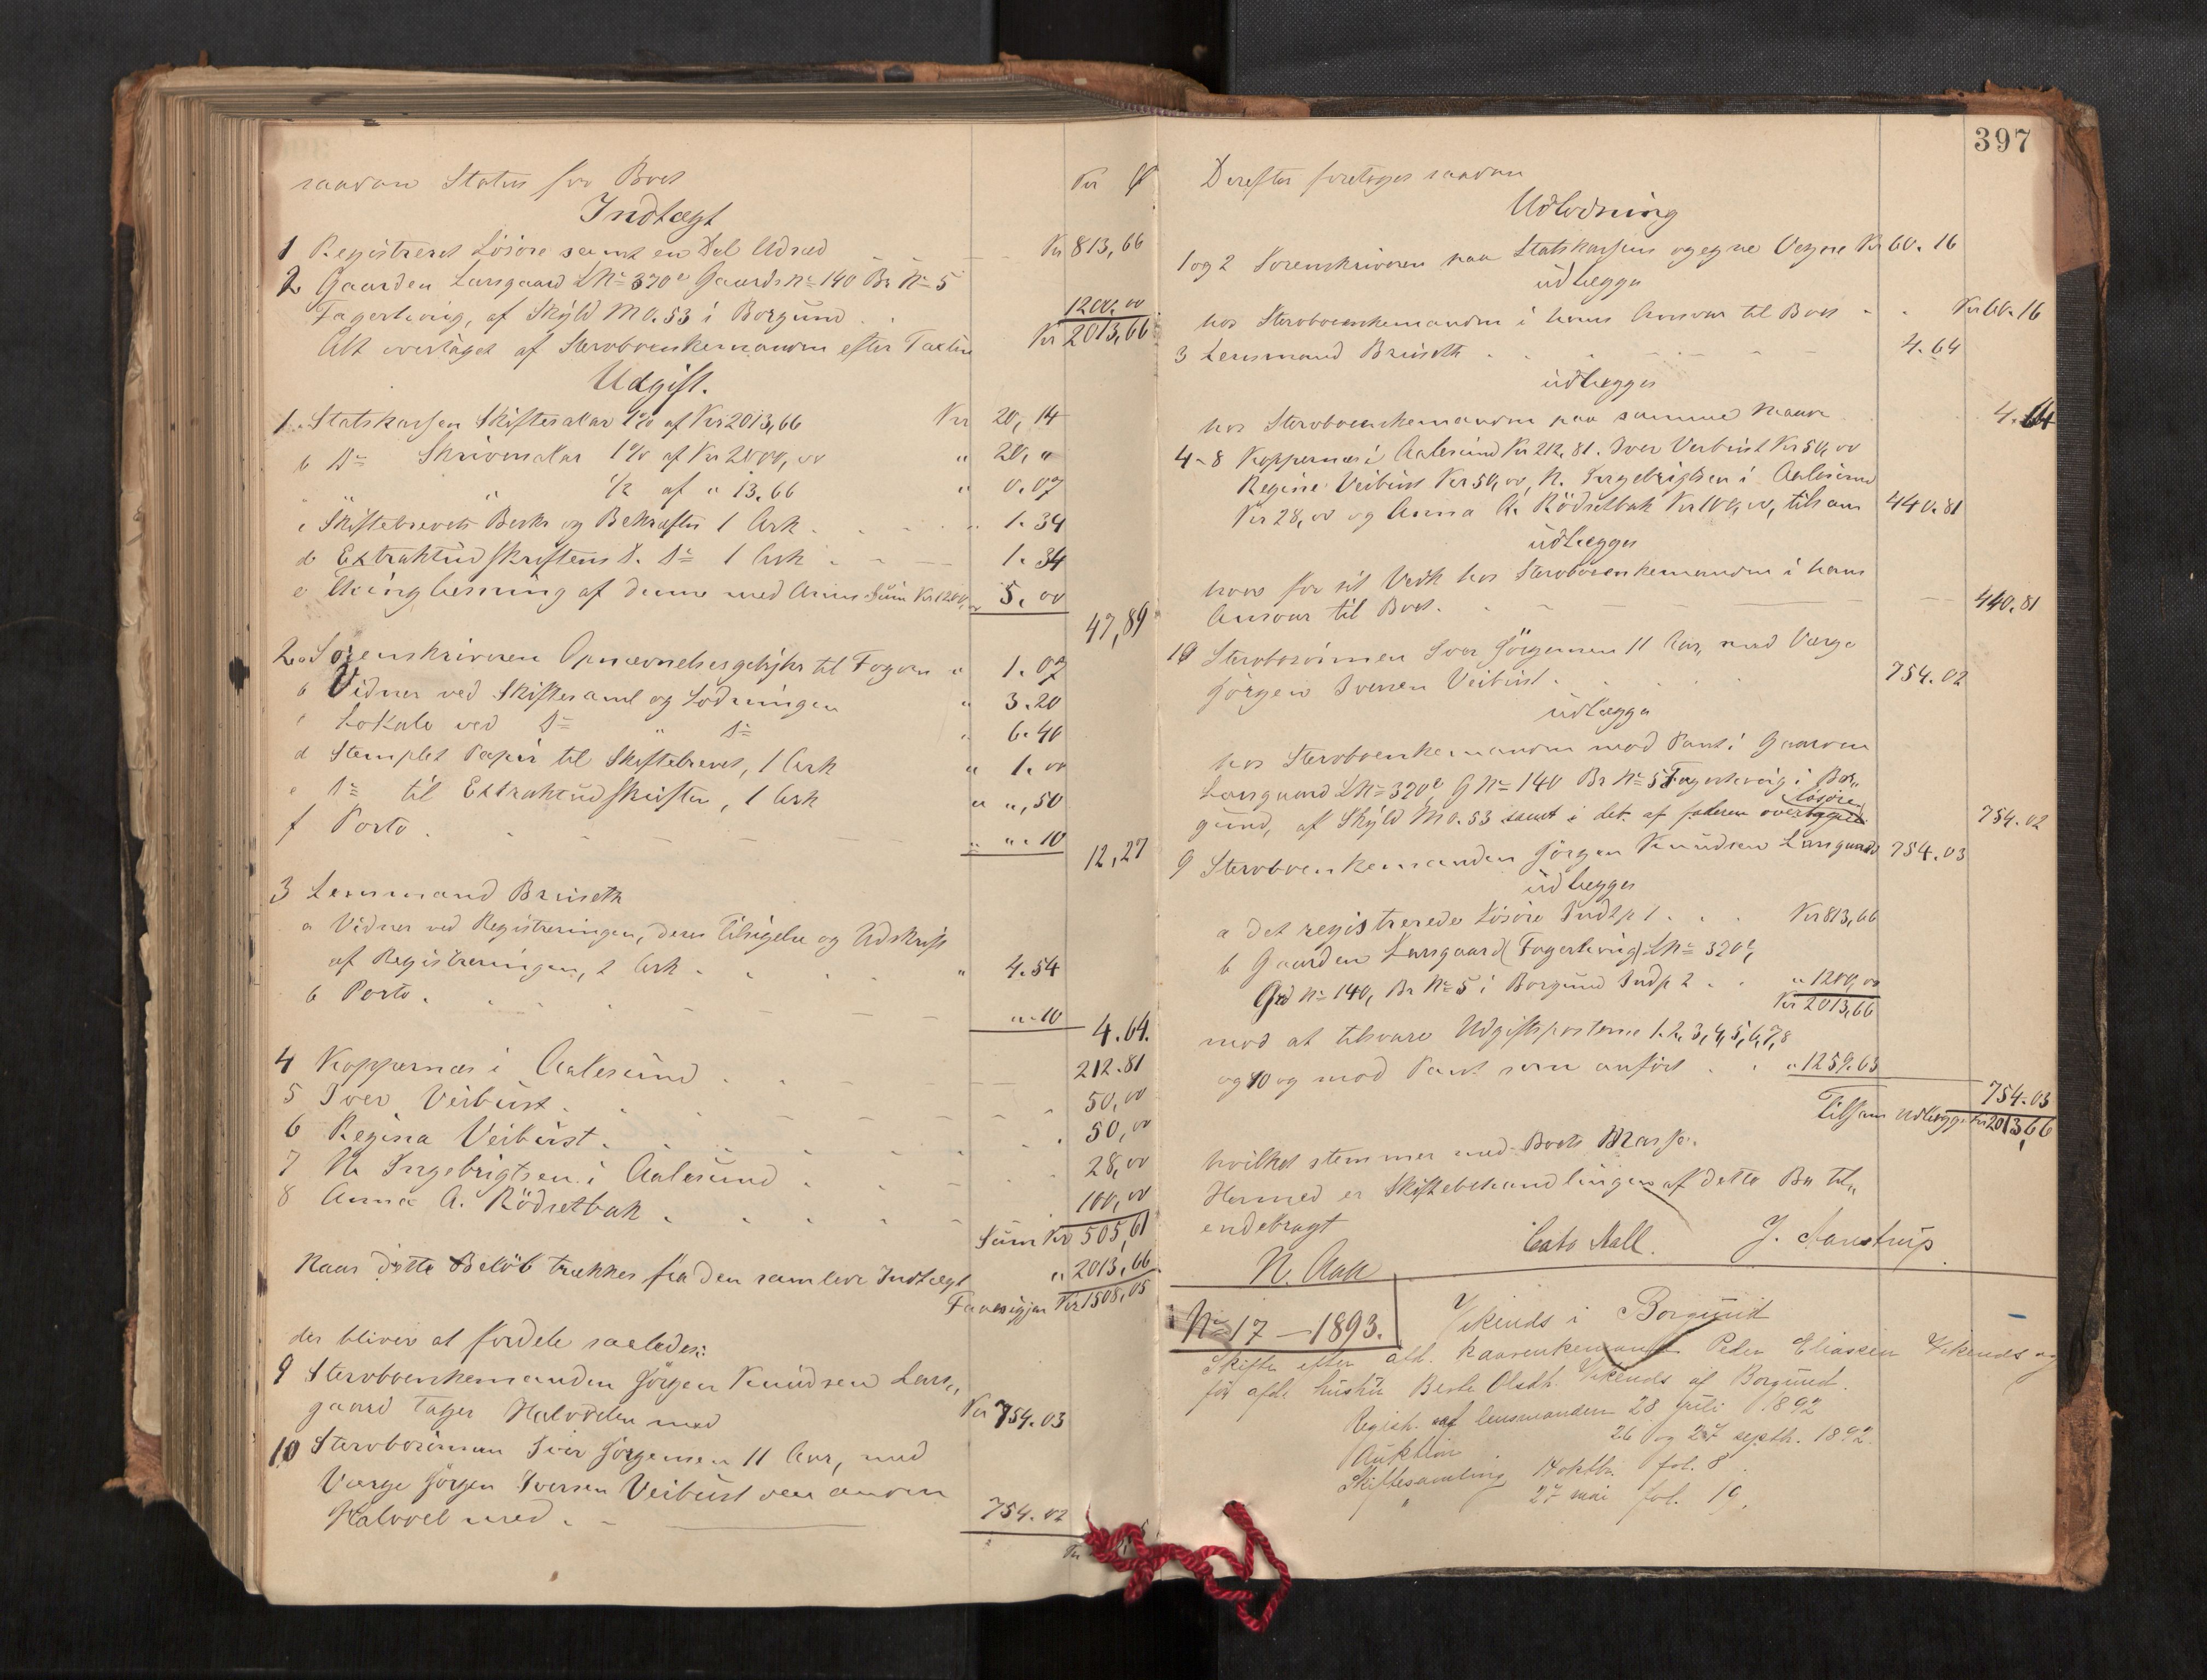 saadan Status for Boet
Kr Ø
Indtægt
1 Registreret Løsøre samt en Del Udræd Kr 813,66
2 Gaarden Larsgaard LNr 320e Gaards Nr 140 Br Nr 5
Fagerheng, af Skyld M 0.53 i Borgund 1200.00
Alt overtaget af Stervboenkemanden efter Taxten Kr 2013,66
Udgift.
1. Statskassen Skifteskat 1% af Kr 2013,66 Kr 20,14
b Do 1% af Kr 2000,00 " 20,"
" " 1/2 af " 13.66 " 0.07
c Skiftebrevets Beskr og Bekræftn 1 Ark " 1.34
d Extraktudskriftens D. Do 1 Ark 1.34
e Thinglæsning af denne med Anm Sum Kr 1200,00 5.00
47,89
2a Sorenskriveren Opnævnelsesgebyhr til Fogden " 1.07
b Vidner ved Skiftesaml og Lodningen " 3.20
c Lokale ved Do " Do " 6.40
d Stemplet Papir til Skiftebrevet, 1 Ark " 1.00
e Do til Extraktudskriften, 1 Ark " ",50
f Porto. " ".10
12,27
3 Lensmand Bruseth
a Vidner ved Registreringen, deres Tilsigelse og Udskrift
af Registreringen, 2 Ark " 4.54
b Porto. ".10
4.64.
4 Koppernæs i Aalesund 212.81
5 Iver Veibust. 50,00
6 Regina Veibust. 50,00
7 N. Ingebrigtsen i Aalesund 28,00
8 Anna A. Rödsetbak 100,00
Sum Kr 505,61
Naar dette Beløb trækkes fra den samlede Indtægt " 2013,66
Fremsigjer Kr 1508,05
der bliver at fordele saaledes:
9 Stervboenkemanden Jörgen Knudsen Lars„
gaard tager Halvdelen med Kr 754.03
10 Stervbosønnen Iver Jörgensen 11 Aar, med
Værge Jörgen Iversen Veibust den anden
Halvdel med. 754.02
397
Derefter foretoges saadan
Udlodning
1 og 2 Sorenskriveren paa Statskassens og egne Vegne Kr 60.16
udlægges
hos Stervboenkemanden i hans Ansvar til Boet Kr 60.16
3 Lensmand Bruseth 4.64
udlægges
hos Stervboenkemanden paa samme Maade 4.64
4-8 Koppernæs i Aalesund Kr 212.81. Iver Veibust Kr 50,00
Regine Veibust Kr 50,00, N. Ingebrigtsen i Aalesund
Kr 28,00 og Anna A. Rödsetbak Kr 100,00, tilsam 440.81
udlægges
hver for sit Vedk hos Stervboenkemanden i hans
Ansvar til Boet. 440.81
10 Stervbosönnen Iver Jörgensen 11 Aar, med Værge
Jörgen Iversen Veibust. 754.02
udlægges
hos Stervboenkemanden mod Pant i Gaarden
Larsgaard LNr 320e, GNr 140 Br Nr 5 Fagerheng i Bor„
gund, af Skyld M 0.53 samt i det af faderen overtagne løsøre 754.02
9 Stervboenkemanden Jörgen Knudsen Larsgaard 754.03
udlægges
a det registrerede Løsöre Indtp 1 Kr 813,66
b Gaarden Larsgaard (Fagerheng) LNr 320e,
Grd Nr 140, Br Nr 5 i Borgund Indp 2 " 1200,00
Kr 2013,66
mod at tilsvare Udgiftsposterne 1.2.3,4,5,6,7,8
og 10 og mod Pant som anfört " 1259.63
754.03
Tilsam Udlægges Kr 2013,66
hvilket stemmer med Boets Masse.
Hermed er Skiftebehandlingen af dette Bo til„
endebragt
N. Aaa Cato Aall. J. Aanstrup
No 17 — 1893. Vikends i Borgund
Skifte efter afd. kaarenkemand Peder Eliassen Vikends og
før afd. hustru Berte Olsdt. Vikends af Borgund.
Regist. af lensmanden 28 juli 1892
Auktion 26 og 27 septb. 1892.
Skiftesamling 14 oktbr. fol. 8
" 27 mai fol. 19.